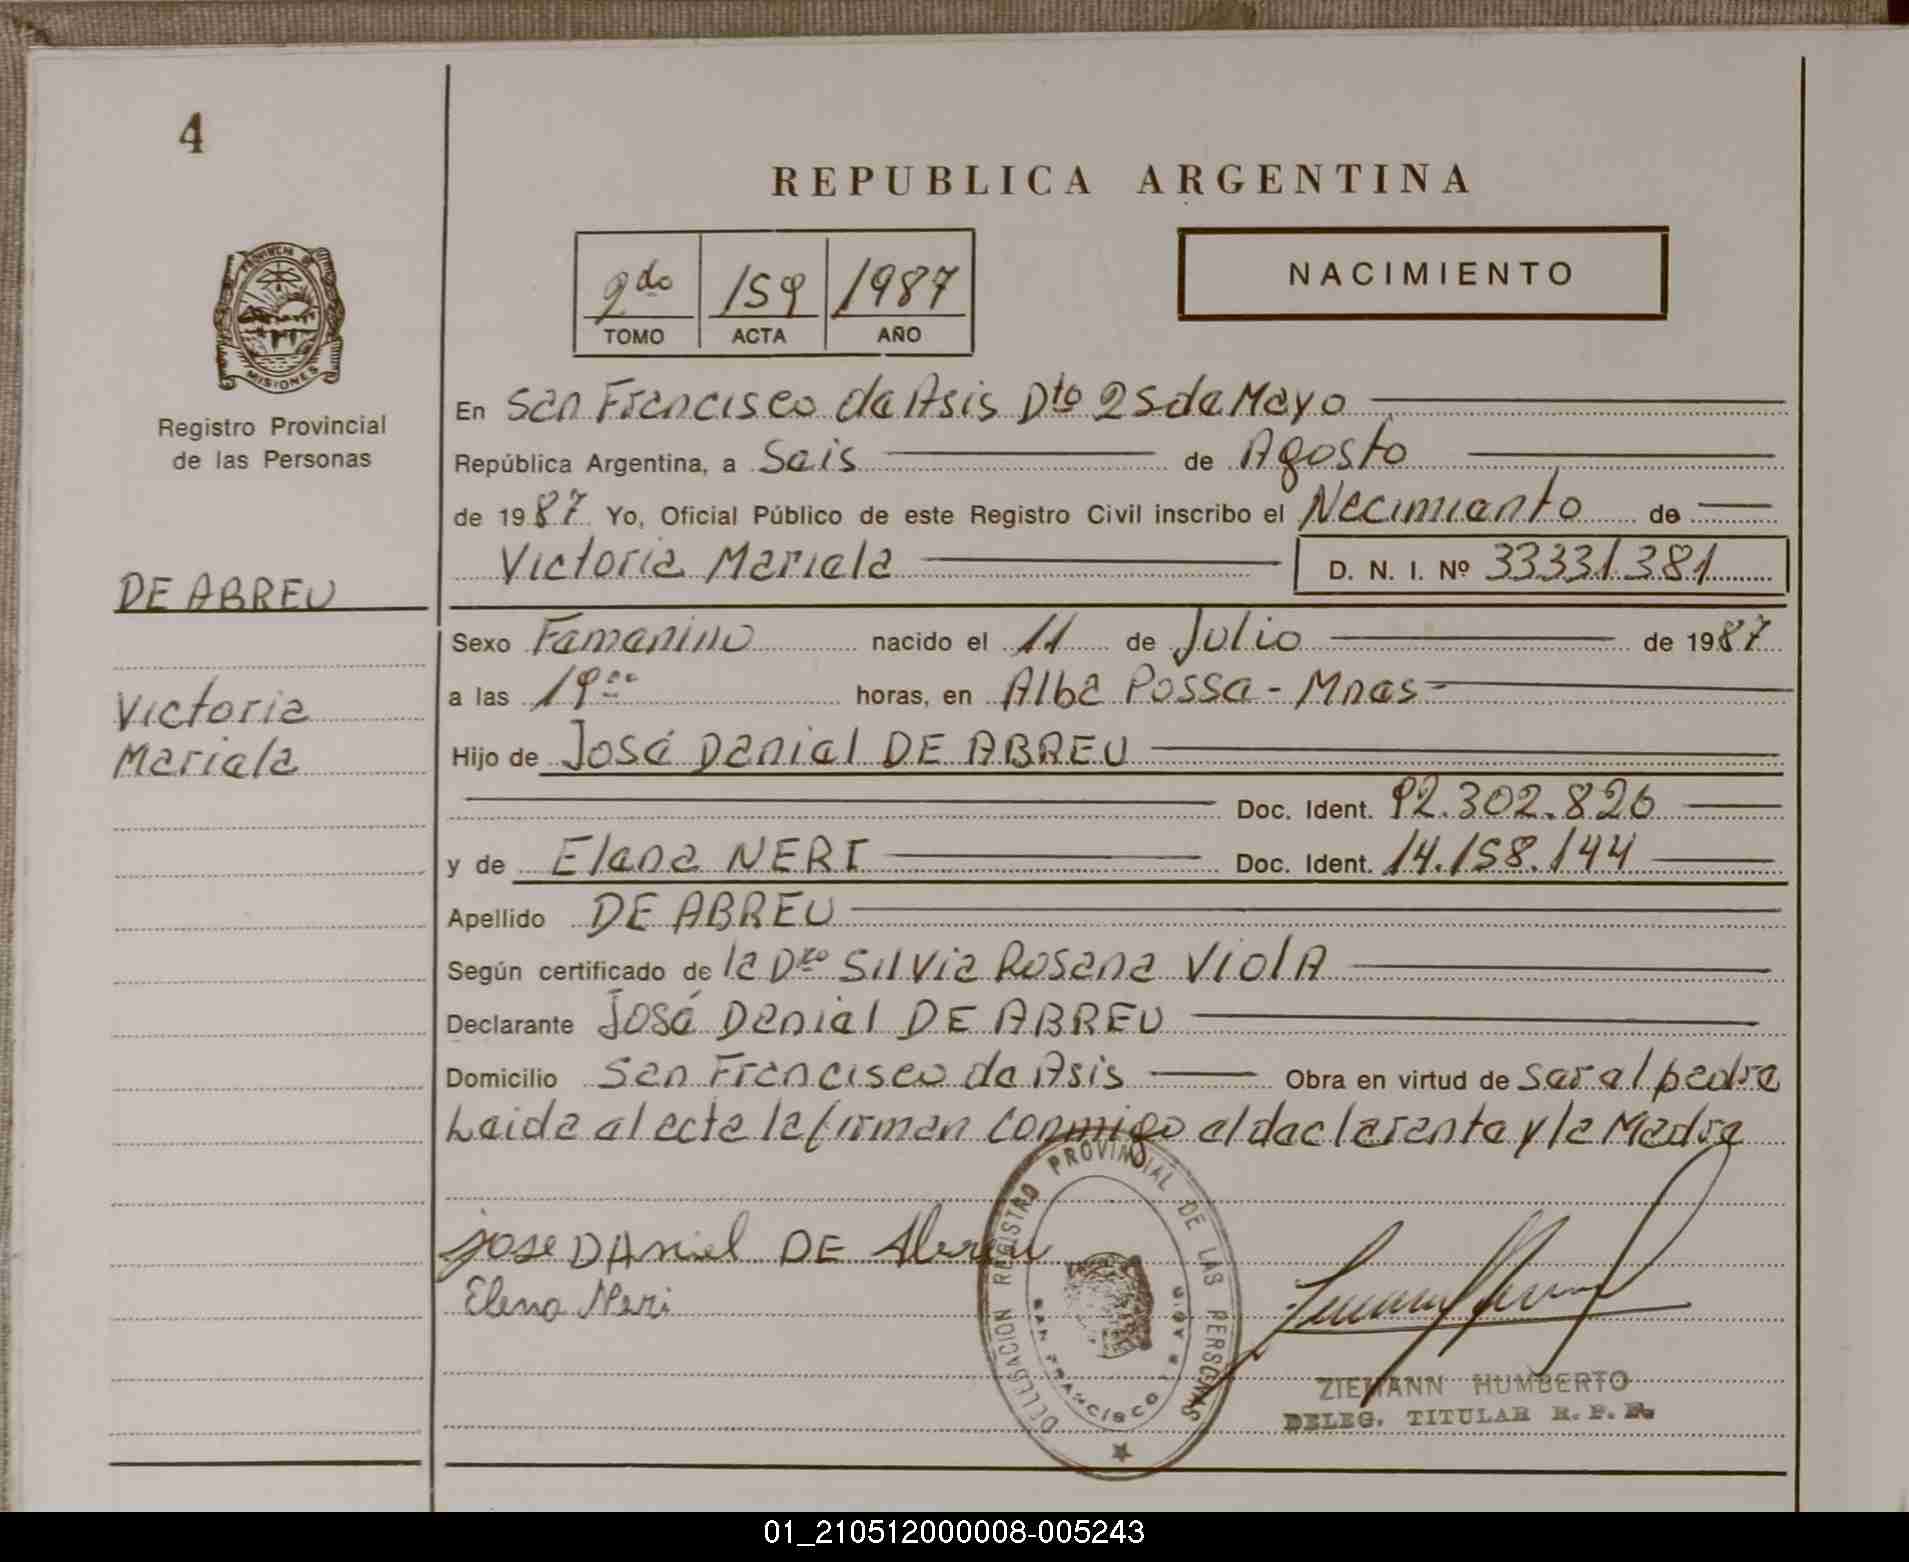 4
REPUBLICA ARGENTINA
2do 159 1987
TOMO ACTA AÑO
NACIMIENTO
PROVINCIA DE
MISIONES
Registro Provincial
de las Personas
En San Francisco de Asis Dto 25 de Mayo
República Argentina, a Seis de Agosto
de 1987 Yo, Oficial Público de este Registro Civil inscribo el Nacimiento de
Victoria Mariela D. N. I. Nº 33331381
DE ABREU
Victoria
Mariela
Sexo Femenino nacido el 11 de Julio de 1987
a las 19 horas, en Alba Possa - Mnes -
Hijo de José Daniel DE ABREU
Doc. Ident. 92.302.826
y de Elena NERI Doc. Ident. 14.158.144
Apellido DE ABREU
Según certificado de la Dra Silvia Rosana ViolA
Declarante José Daniel DE ABREU
Domicilio San Francisco de Asis Obra en virtud de ser el padre
Leida el acta la firman conmigo el declarante y la Madre
jose DAniel DE Abreu
Elena Neri
DELEGACION REGISTRO PROVINCIAL DE LAS PERSONAS
SAN FRANCISCO DE ASIS
ZIEMANN HUMBERTO
DELEG. TITULAR R. P. P.
01_210512000008-005243